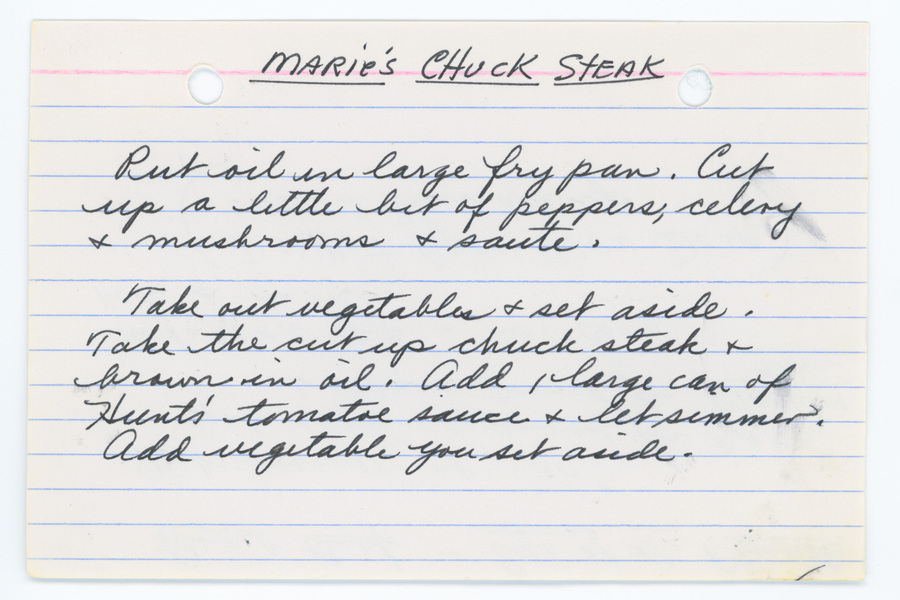 MARIE'S CHUCK STEAK
Put oil in large fry pan. Cut
up a little bit of peppers, celery
& mushrooms & saute.
Take out vegetables & set aside.
Take the cut up chuck steak &
brown in oil. Add 1 large can of
Hunts' tomatoe sauce & let simmer.
Add vegetable you set aside.